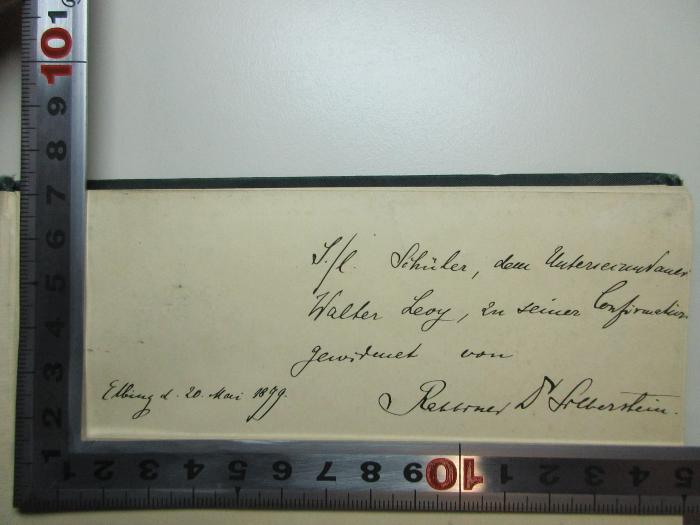 S./l. Schüler, dem Untersecundaner
Walter Levy, zu seiner Confirmation
gewidmet von
Elbing d. 20. Mai 1879. Rabbiner Dr Silberstein.
1 2 3 4 5 6 7 8 9 10 1
1 2 3 4 5 6 7 8 9 10 1 2 3 4 5